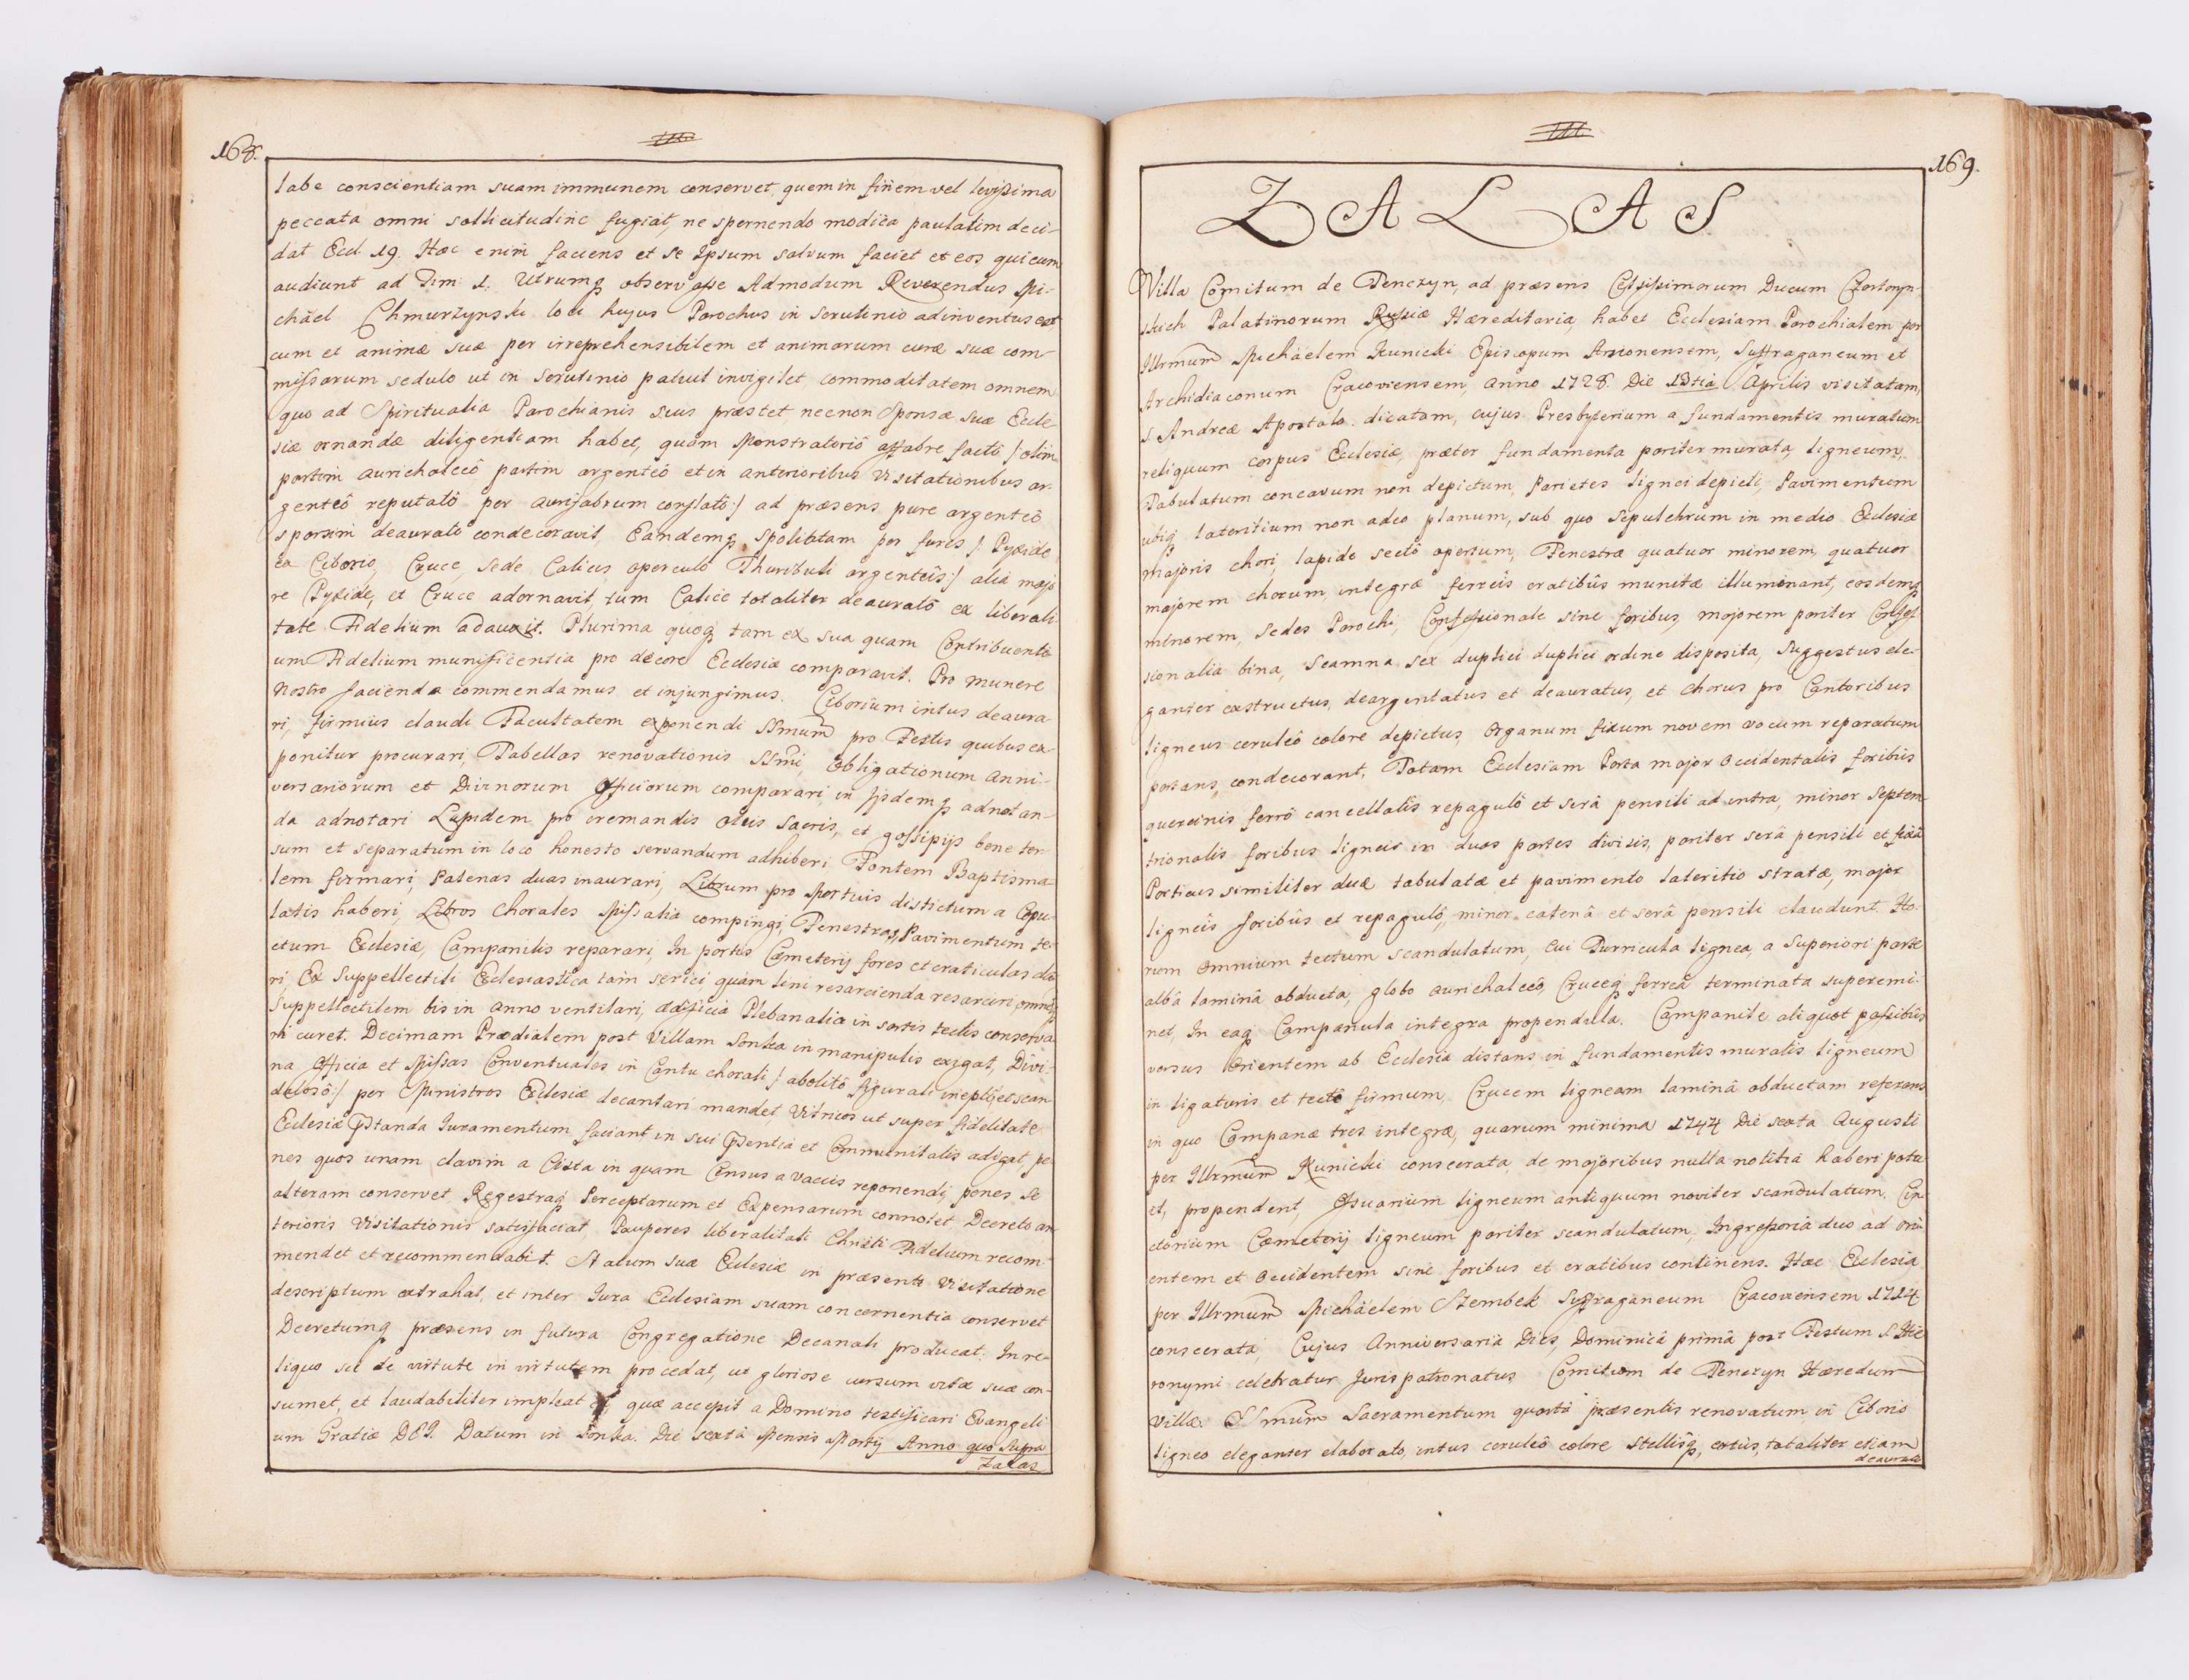 168.
labe conscientiam suam immunem conservet, quem in finem vel levissima
peccata omni sollicitudine fugiat, ne spernendo modica paulatim deci-
dat Eccl 19. Hac enim faciens et se Ipsum salvum faciet et eos qui eum
audiunt ad Tim 1. Utrumq observasse Admodum Reverendus Mi-
chäel Chmurzynski loci hujus Parochus in scrutinio adinventus est
cum et animæ suæ per irreprehensibilem et animarum curæ suæ com-
missarum sedulo ut in scrutinio patuit invigilet, commoditatem omnem
quo ad Spiritualia Parochianis suis præstet necnon Sponsæ suæ Eccle
siæ ornandæ diligentiam habet, quam Monstratoriô affabre factô /: olim
partim aurichalceô partim argenteô et in anterioribus Visitationibus ar-
genteô reputatô per aurifabrum conflatô :/ ad præsens pure argenteô
sparsim deauratô condecoravit, Eandemq spoliatam per fures /: Pyxide
ea Ciborio, Cruce, sede Calicis operculo Thuribuli argenteis :/ aliâ majo
re Pyxide, et Cruce adornavit, tum Calice totaliter deauratô ex liberali
tate Fidelium adauxit. Plurima quoq tam ex sua quam Contribuenti
um Fidelium munificentia pro decore Ecclesiæ comparavit. Pro munere
Nostro facienda commendamus et injungimus. Ciborium intus deaura-
ri, firmius claudi Facultatem exponendi SSmum pro Festis quibus ex
ponitur procurari, Tabellas renovationis SSmi, Obligationum Anni-
versariorum et Divinorum Officiorum comparari, in ijsdemq adnotan-
da adnotari Lapidem pro cremandis Oleis Sacris, et gossipijs bene ter-
sum et separatum in loco honesto servandum adhiberi, Fontem Baptisma-
lem firmari, Patenas duas inaurari, Librum pro Mortuis distictum a Copu-
latis haberi, Libros Chorales Missalia compingi, Fenestras, Pavimentum te-
ctum Ecclesiæ, Campanilis reparari, In portis Cæmeterij fores et craticulas da
ri, Ex Suppellectili Ecclesiastica tam serici, quam lini resarcienda resarciri omnêq
Suppellectilem bis in anno ventilari, ædificia Plebanalia in sartis tectis conserva
ri curet. Decimam Prædialem post Villam Sanka in manipulis exigat, Divi-
na Officia et Missas Conventuales in Cantu chorali /: abolitô figurali ineptô, et scan
dalosô :/ per Ministros Ecclesiæ decantari mandet, Vitricos ut super fidelitate
Ecclesiæ præstanda Iuramentum faciant in sui præsentia et Communitatis adigat, pe
nes quos unam clavim a Cista in quam Census a vaccis reponendi, penes se
alteram conservet, Regestraq Perceptarum et Expensarum connotet Decreto an
terioris Visitationis satisfaciat, Pauperes liberalitati Christi Fidelium recom-
mendet et recommendabit. Statum suæ Ecclesiæ in præsenti Visitatione
descriptum extrahat, et inter Iura Ecclesiam suam concernentia conservet
Decretumq præsens in futura Congregatione Decanali producat. In re-
liquo sic de virtute in virtutem procedat, ut gloriose cursum vitæ suæ con-
sumet, et laudabiliter impleat quæ accepit a Domino testificari Evangeli
um Gratiæ DEI. Datum in Sanka. Die sextâ Mensis Martij Anno quo supra
Zalas
169.
ZALAS
Villa Comitum de Tenczyn, ad præsens Celsissimorum Ducum Czartoryn-
skich Palatinorum Russiæ Hæreditaria, habet Ecclesiam Parochialem per
Illrmum Michäelem Kunicki Episcopum Arsionensem, Suffraganeum et
Archidiaconum Cracoviensem, anno 1728. Die 13tia Aprilis visitatam,
S. Andreæ Apostolo dicatam, cujus Presbyterium a fundamentis muratum
reliquum corpus Ecclesiæ, præter fundamenta pariter murata, ligneum,
Tabulatum concavum non depictum, Parietes lignei depicti, Pavimentum
utiq lateritium non adeo planum, sub quo Sepulchrum in medio Ecclesiæ
majoris chori, lapide sectô opertum, Fenestræ quatuor minorem, quatuor
majorem chorum, integræ ferreis cratibûs munitæ illuminant, eosdemq
minorem, Sedes Parochi, Confessionale sine foribus, majorem pariter Confes
sionalia bina, Scamna sex duplici duplici ordine disposita, Suggestus ele-
ganter exstructus, deargentatus et deauratus, et Chorus pro Cantoribus
ligneus ceruleô colore depictus, Organum fixum novem vocum reparatum
portans, condecorant. Totam Ecclesiam Porta major Occidentalis foribus
quercinis ferrô cancellatis repagulô et serâ pensili ad intra, minor Septem
trionalis foribus ligneis in duas partes divisis, pariter serâ pensili et fixâ
Porticus similiter duæ tabulatæ et pavimento lateritio stratæ, major
ligneis foribûs et repagulô, minor catenâ et serâ pensili claudunt. Ho-
rum Omnium tectum scandulatum, cui Turricula lignea, a Superiori parte
albâ laminâ obducta, globo aurichalceô, Cruceq ferreâ terminata superemi-
net, In eaq Campanula integra propendula. Campanile aliquot passibûs
versus Orientem ab Ecclesia distans in fundamentis muratis ligneum
in ligaturis et tectô firmum, Crucem ligneam laminâ obductam referens
in quo Campanæ tres integræ, quarum minima 1744 Die sexta Augusti
per Illrmum Kunicki consecrata, de majoribus nulla notitia haberi potu
it, propendent, Ossuarium ligneum antiquum noviter scandulatum, Cin-
ctorium Cæmeterij ligneum pariter scandulatum, Ingressoria duo ad Ori-
entem et Occidentem sine foribus et cratibus continens. Hæc Ecclesia
per Illrmum Michäelem Szembek Suffraganeum Cracoviensem 1714
consecrata, Cujus Anniversaria Dies, Dominicâ primâ post Festum S. Hie
ronymi celebratur Juris patronatus Comitum de Tenczyn Hæredum
Villæ. SSmum Sacramentum quartâ præsentis renovatum, in Ciborio
ligneo eleganter elaborato, intus ceruleô colore Stellisq, extus, totaliter etiam
deaurato